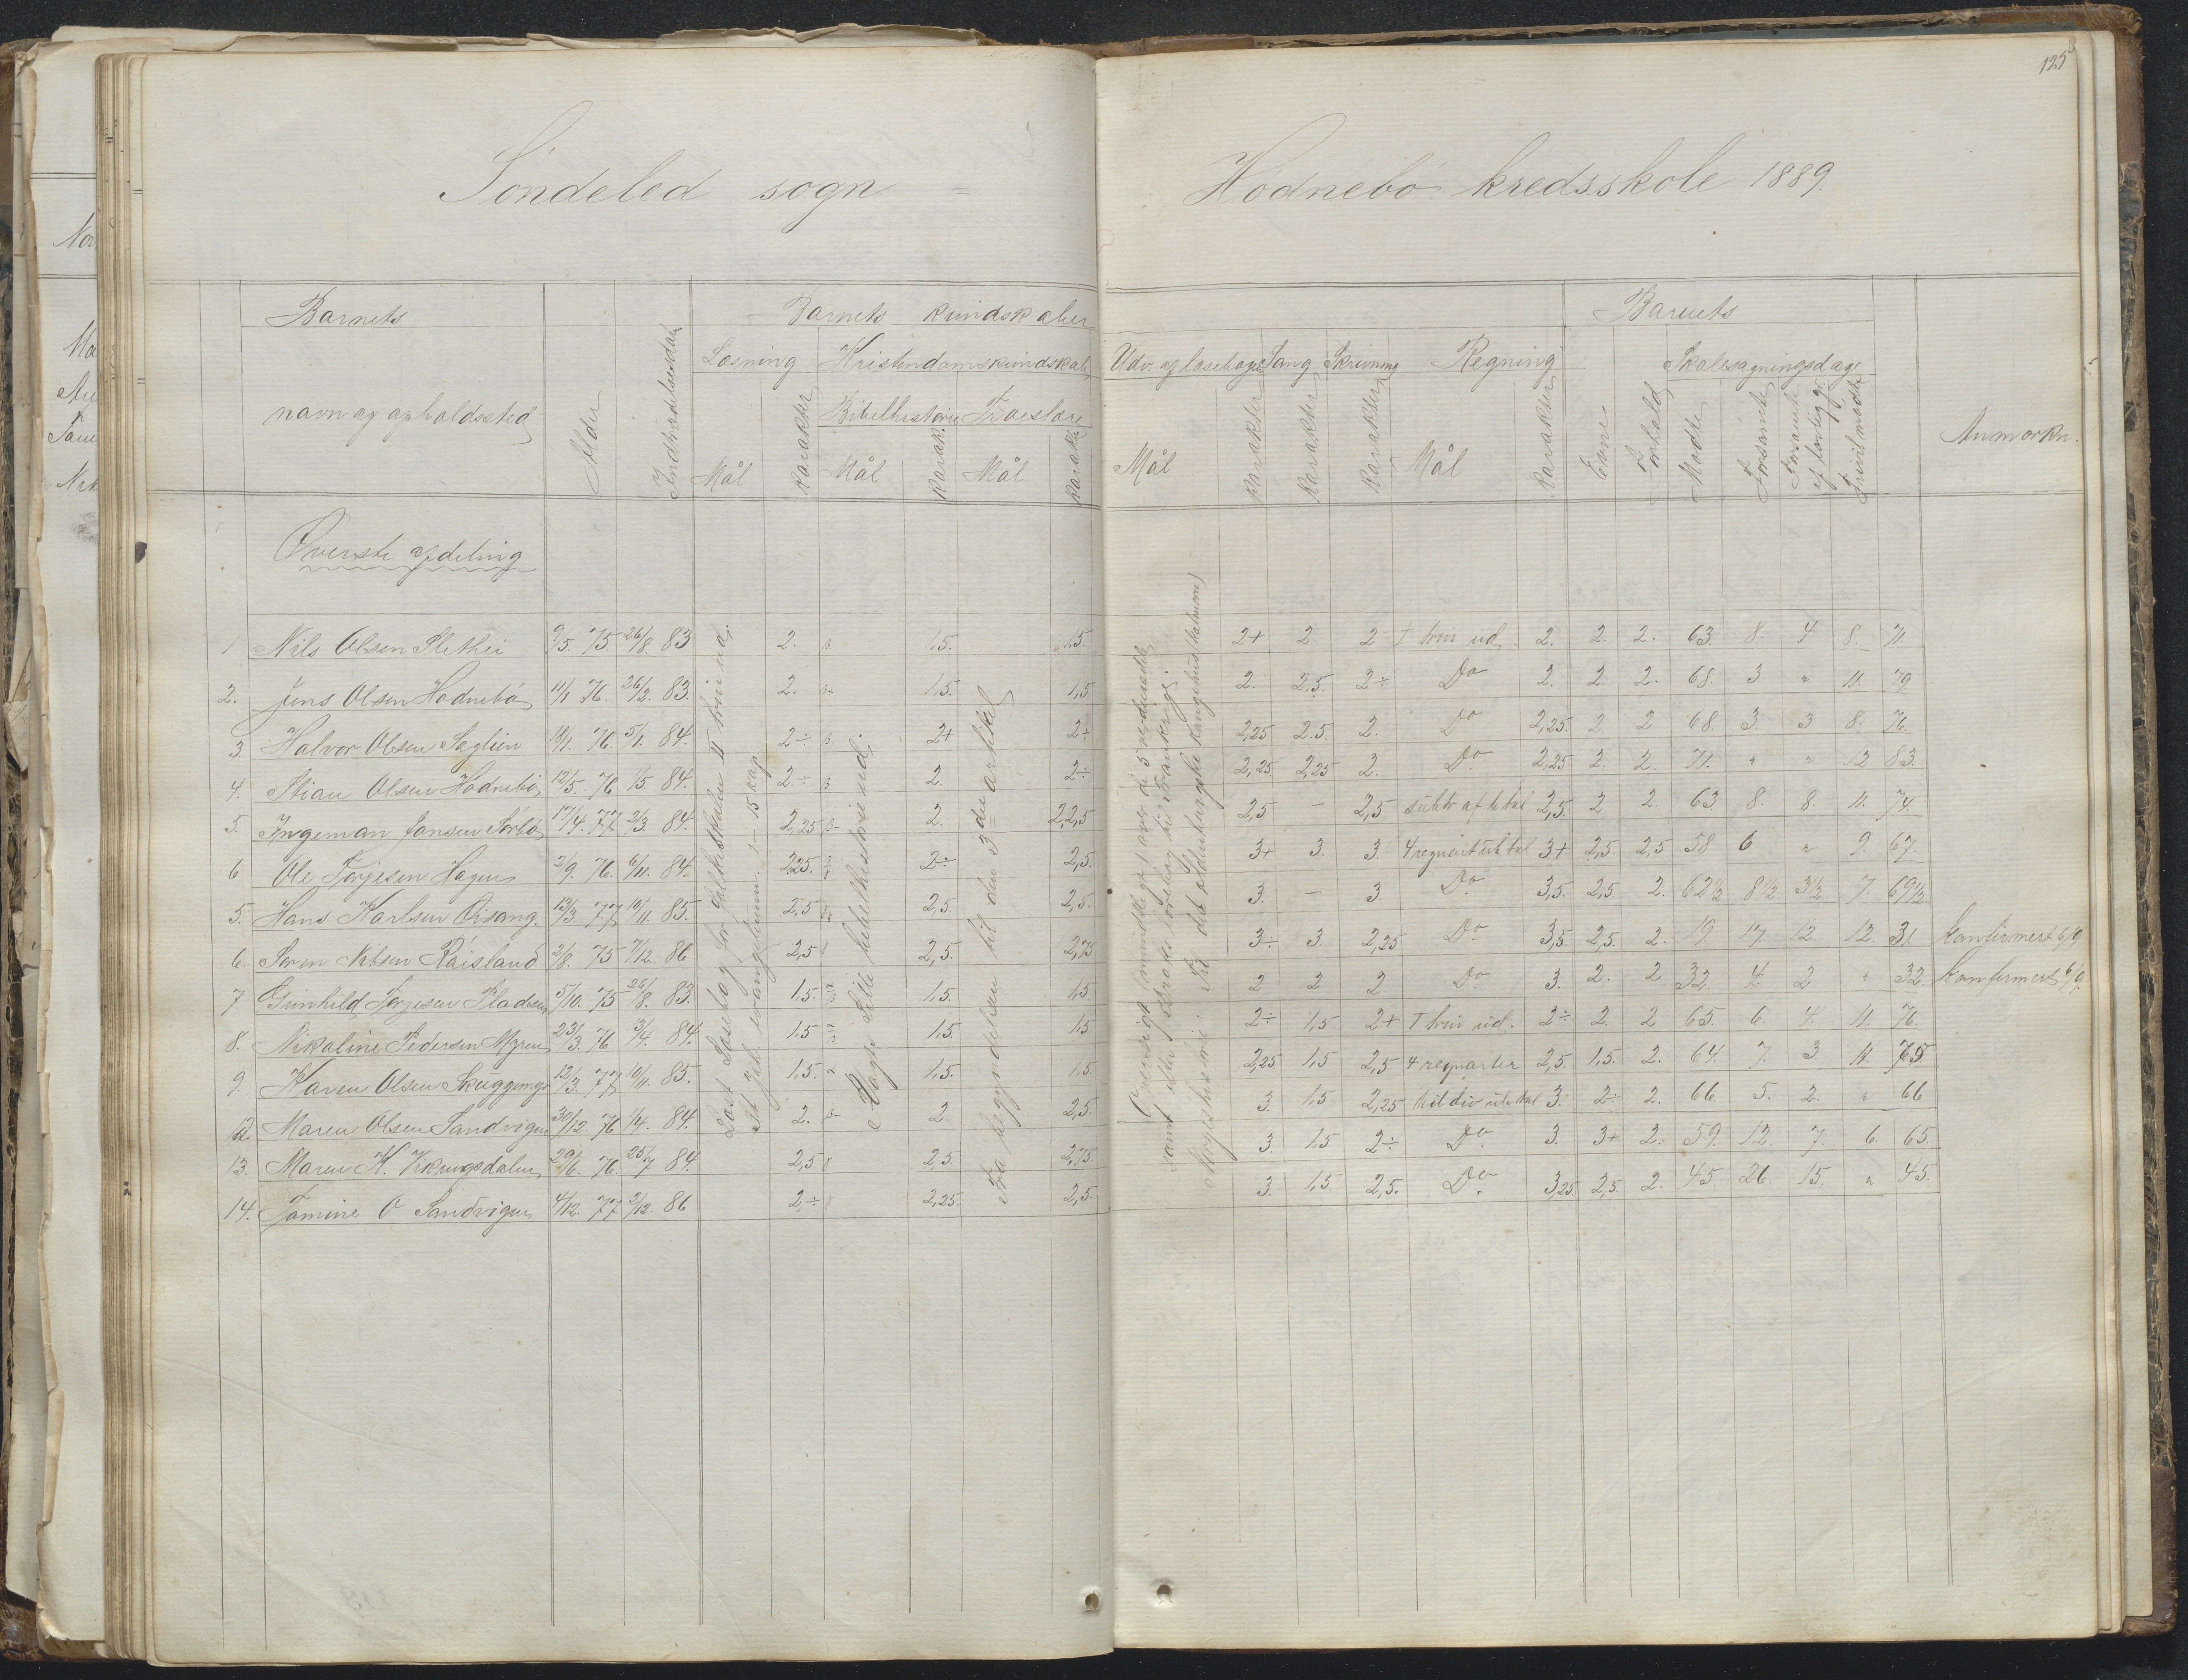 125
Søndeled sogn = Hødnebø kredsskole 1889.
Barnets
Barnets kundskaber
Barnets
navn og opholdssted
Alder
Indtrædelsesdato
Læsning
Kristendomskundskab
Bibelhistorie
Troeslære
Udv. af læsebogen
Sang
Skrivning
Regning
Evne
Forhold
Skolesøgningsdage
Anmærkn.
Mål
Karakter
Mål
Karak.
Mål
Karakt.
Mål
Karakter
Karakter
Karakter
Mål
Karakter
Mødte
Forsømte
Forsømte af lovlig gr.
Frivil. mødte
Øverste afdeling
1 Nils Olsen Pletthei 9/5. 75 26/8. 83 2. 1,5. 1,5 2+ 2. 2 I trin ud. 2. 2. 2. 63. 8. 4 8. 71.
2. Jens Olsen Hødnebø 11/1 76. 26/2. 83. 2. 1,5. 1,5 2. 2,5. 2÷ Do 2. 2. 2. 68. 3 " 11. 79
3. Halvor Olsen Saglien 10/1. 76. 5/1. 84. 2÷ 2+ 2÷ 2,25 2.5. 2. Do 2,25. 2 2 68. 3. 3 8. 76.
4. Stian Olsen Hødnebø 12/5. 76 1/5. 84. 2÷ 2. 2÷ 2,25 2,25 2. Do 2,25 2. 2. 71. " " 12 83.
5. Ingeman Jansen Sørbø 17/4. 77 2/3. 84. 2,25 2. 2,25 2,5 – 2,5 subtr af h tal 2,5. 2 2. 63. 8. 8. 11. 74.
6 Ole Torjesen Hagen 2/9. 76. 6/11. 84. 2,25. 2÷ 2,5. 3+ 3. 3. 4 regnearti h tal 3+ 2,5. 2,5 58 6 " 9. 67.
5. Hans Karlsen Øisang. 13/3. 77 10/11. 85. 2,5 2,5. 2,5. 3. – 3 Do 3,5. 2,5 2. 62 1/2 8 1/2 3 1/2 7. 69 1/2
6. Søren Nilsen Røisland 2/8. 75 7/12. 86 2,5 2,5. 2,75 3÷ 3. 2,25 Do 3,5. 2,5. 2. 19 17 12 12. 31. Konfirmert 6/9
7 Gunhild Torjesen Pladsen 5/10. 75 26/8. 83. 1,5. 1,5. 1,5 2 2 2. Do 3. 2. 2. 32. 4. 2 " 32. Konfirmert 6/9
8. Nikaline Pedersen Myren 23/3. 76 3/4. 84. 1.5 1,5. 1,5 2÷ 1,5 2+ I trin ud. 2÷ 2. 2 65. 6. 4. 11. 76.
9. Karen Olsen Skuggemyr 12/3. 77 10/11. 85. 1,5. 1,5. 1,5 2,25 1,5 2,5 4 regnarter 2,5. 1,5. 2. 64. 7. 3 11. 75
12. Maren Olsen Sandvigen 31/12. 76 1/4. 84. 2. 2. 2,5. 3. 1,5 2,25 til div h tal 3. 2÷ 2. 66. 5. 2 " 66
13. Maren K. Vikingsdalen 29/6. 76. 25/7 84. 2,5 2,5. 2,75 3. 1,5 2÷ Do 3. 3+ 2. 59. 12. 7. 6. 65
14. Tomine O Sandvigen 4/12. 77. 2/12. 86 2÷ 2,25. 2,5. 3. 1,5 2,5. Do 3,25. 2,5. 2. 45. 26 15. " 45.
Læst Læsebog for folkeskolen II trin ud.
St Joh. evangelium 1 – 15 kap.
Vogts Lille bibelhistorie ud.
Fra begyndelsen til den 3die artikkel